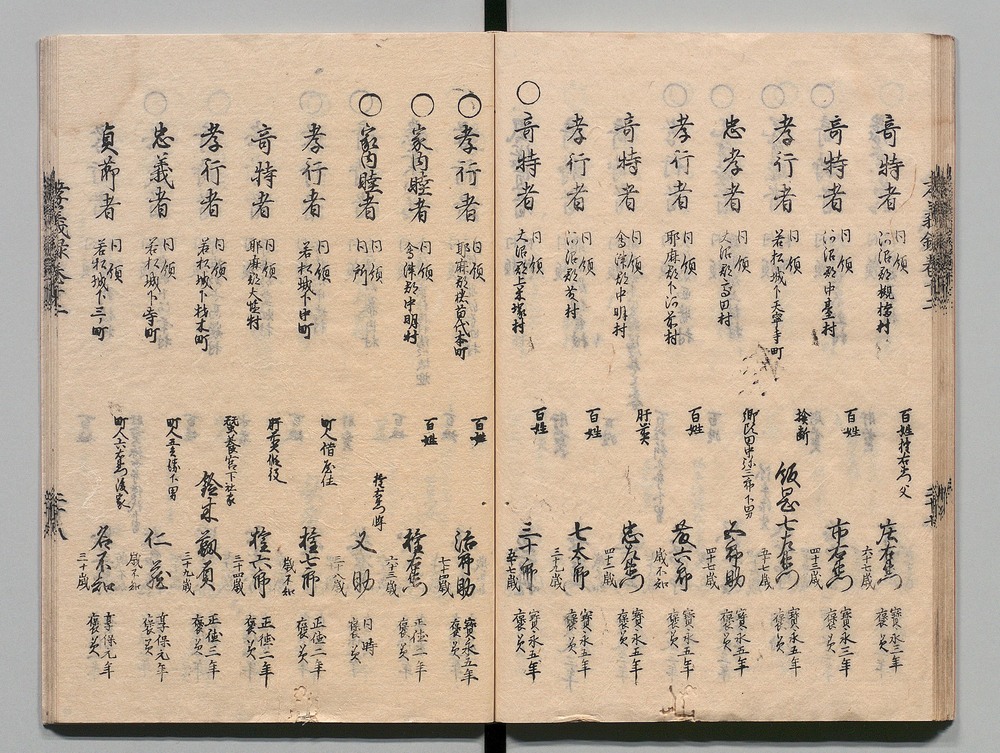 奇特者 同領 河沼郡槻橋村 百姓 権右衛門父 庄右衛門 六十七歳 宝永三年 褒美
奇特者 同領 河沼郡中臺村 百姓 市右衛門 四十三歳 寶永三年 褒美
孝行者 同領 若松城下天寧寺町 検断 飯田 七左衛門 五十七歳 寶永五年 褒美
忠孝者 同領 大沼郡高田村 郷頭田中弥三郎下男 五郎助 四十七歳 寶永五年 褒美
孝行者 同領 耶麻郡下河前村 百姓 六郎 歳不知 寶永五年 褒美
奇特者 同領 會津郡中明村 肝煎 忠左衛門 四十二歳 寶永五年 褒美
孝行者 同領 河沼郡 村 百姓 七太郎 三十九歳 寶永五年 褒美
○奇特者 同領 大沼郡上米塚村 百姓 三十郎 五十七歳 寶永五年 褒美
○孝行者 同領 耶麻郡猪苗代本町 百姓 治郎助 七十四歳 寶永五年 褒美
○家内睦者 同領 會津郡中明村 百姓 権右衛門 六十三歳 正徳二年 褒美
○家内睦者 同領 同所 権右衛門 又助 同時 褒美
孝行者 同領 若松城下中町 町人借屋住 権七郎 歳不知 正徳二年 褒美
奇特者 同領 耶麻郡大塩村 肝煎仮役 権六郎 三十四歳 正徳二年 褒美
孝行者 同領 若松城下材木町 蚕養宮下社家 鈴木 三十九歳 正徳三年 褒美
忠義者 同領 若松城下寺町 下男 仁蔵 歳不知 享保元年 褒美
貞節者 同領 若松城下三ノ町 町人六右衛門後家 名不知 三十歳 享保元年 褒美
孝義録巻十二